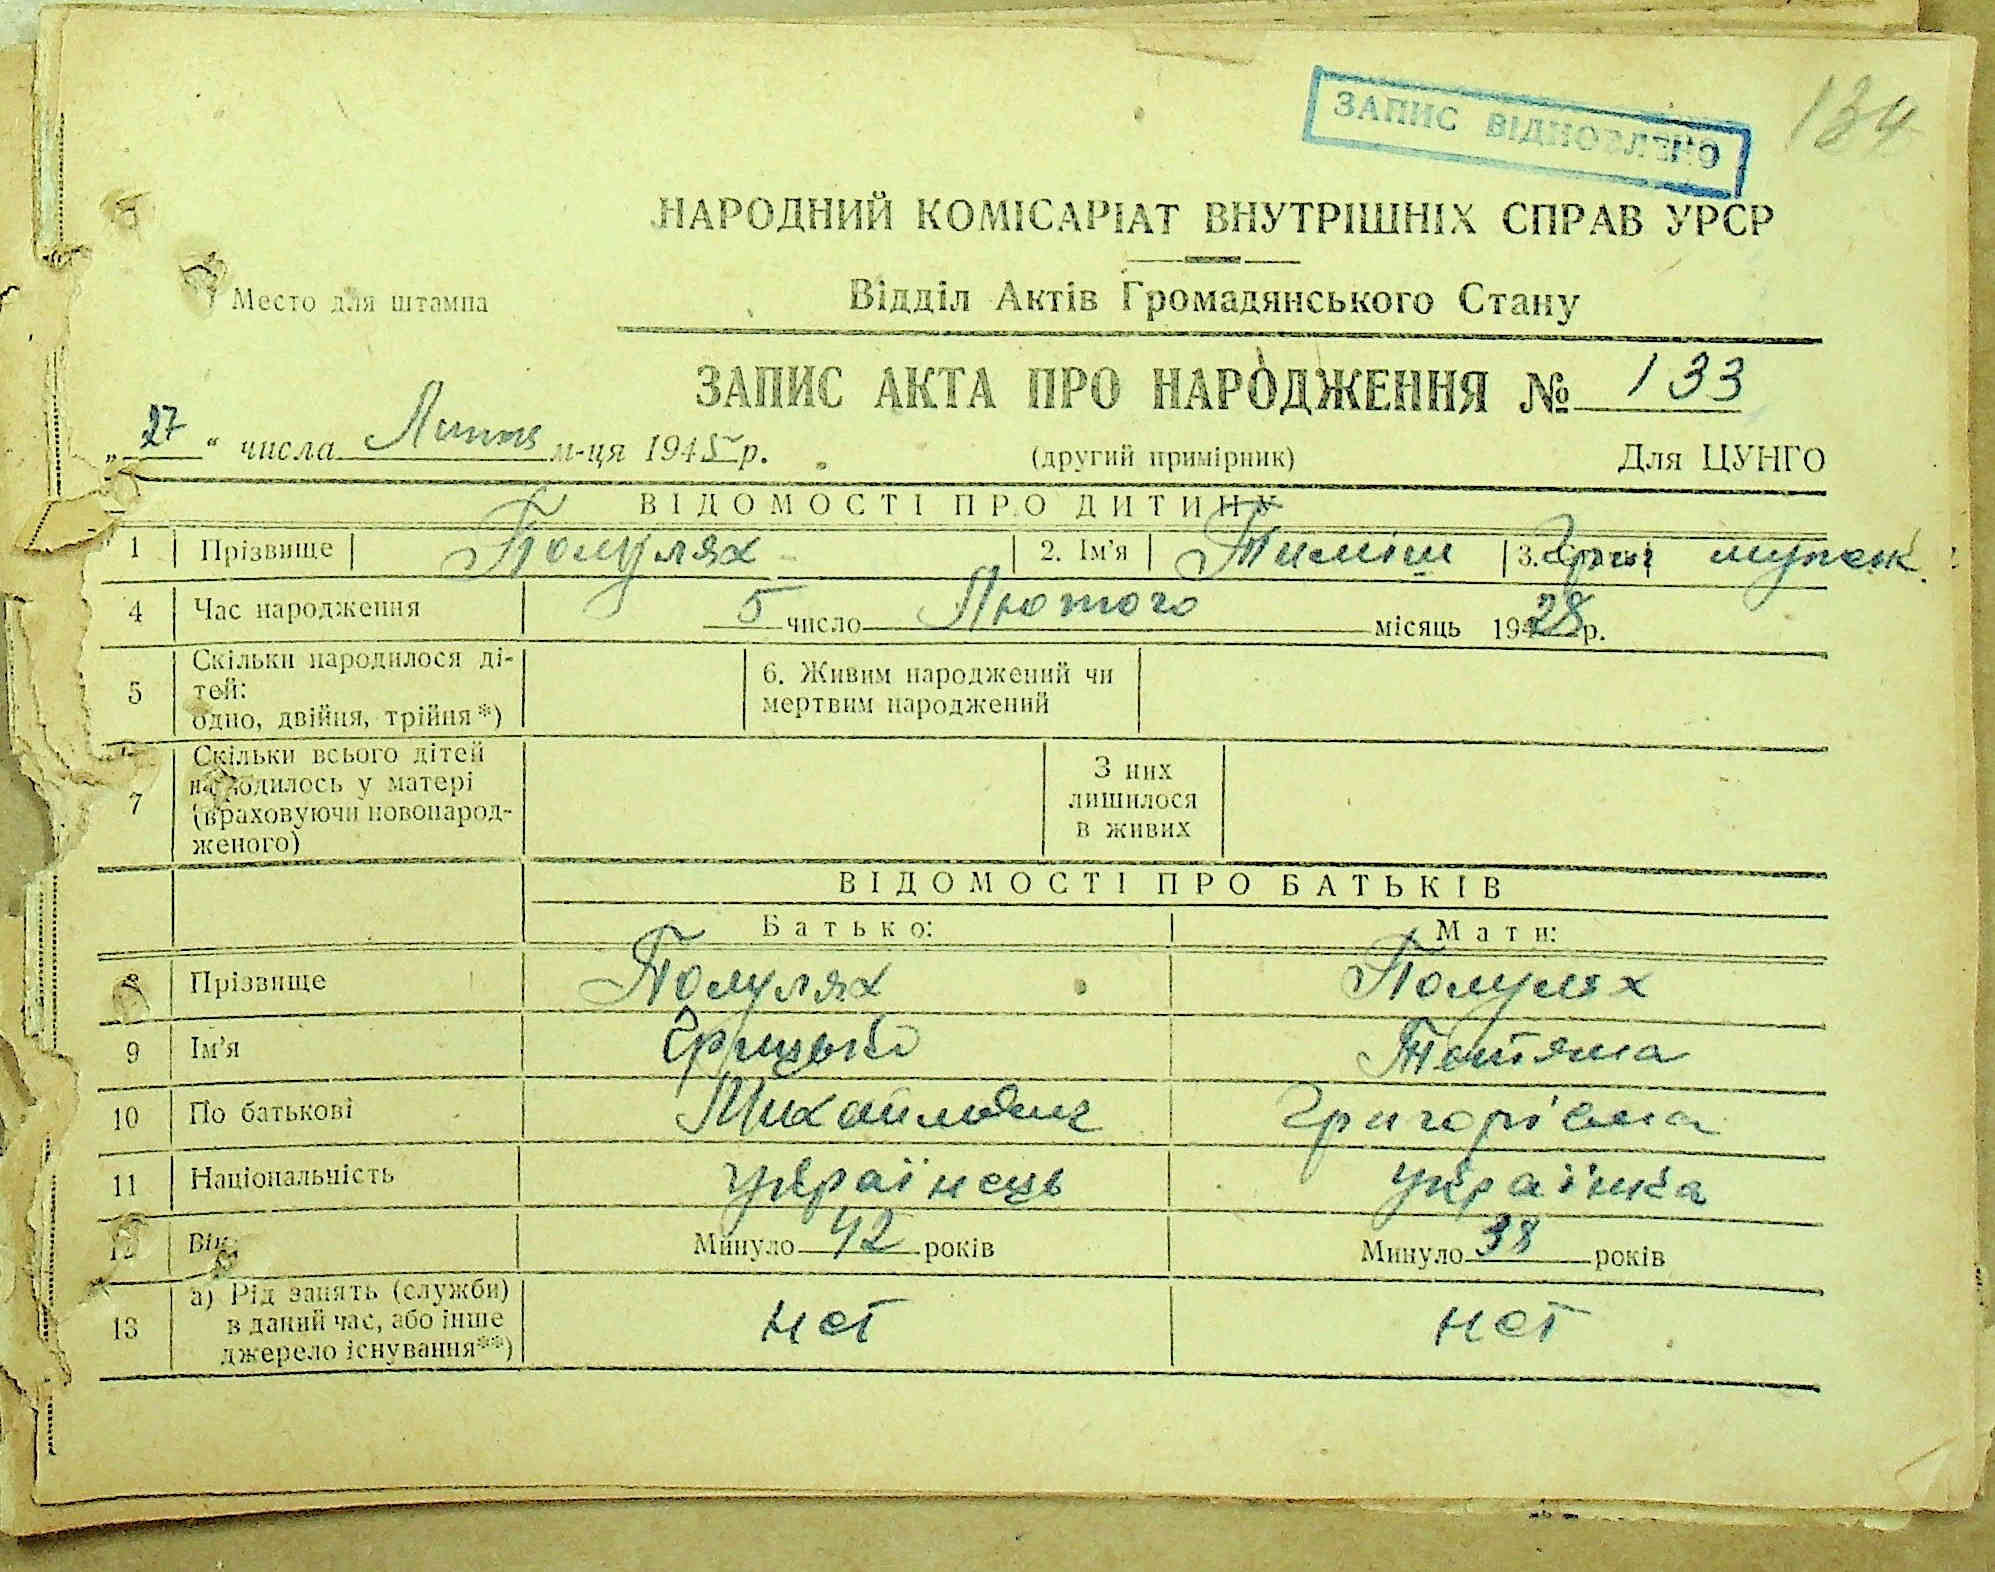 ЗАПИС ВІДНОВЛЕНО
134
НАРОДНИЙ КОМІСАРІАТ ВНУТРІШНІХ СПРАВ УРСР
Место для штампа
Відділ Актів Громадянського Стану
ЗАПИС АКТА ПРО НАРОДЖЕННЯ № 133
„27“ числа Липня м-ця 1945 р. (другий примірник) Для ЦУНГО
ВІДОМОСТІ ПРО ДИТИНУ
1 Прізвище Полулях 2. Ім'я Тиміш 3. мужск.
4 Час народження 5 число Лютого місяць 1928 р.
5 Скільки народилося ді-
тей:
одно, двійня, трійня*)
6. Живим народжений чи
мертвим народжений
7 Скільки всього дітей
народилось у матері
(враховуючи новонарод-
женого)
З них
лишилося
в живих
ВІДОМОСТІ ПРО БАТЬКІВ
Батько: Мати:
8 Прізвище Полулях Полулях
9 Ім'я Грицько Тетяна
10 По батькові Михайлович Григорієвна
11 Національність українець українка
12 Вік Минуло 42 років Минуло 38 років
13 а) Рід занять (служби)
в даний час, або інше
джерело існування**)
нет нет